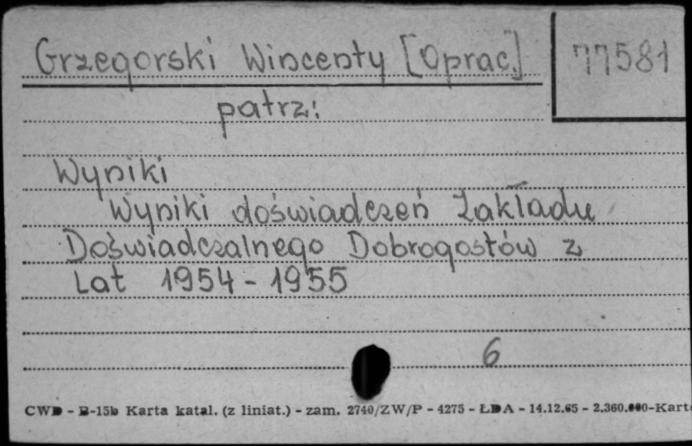 Grzegorski Wincenty [Oprac.]
77581
patrz:
Wyniki
Wyniki doświadczeń Zakładu
Doświadczalnego Dobrogostów z
Lat 1954 - 1955
6
CWD - B-15b Karta katal. (z liniat.) - zam. 2740/ZW/P - 4275 - ŁDA - 14.12.65 - 2.360.000-Kart